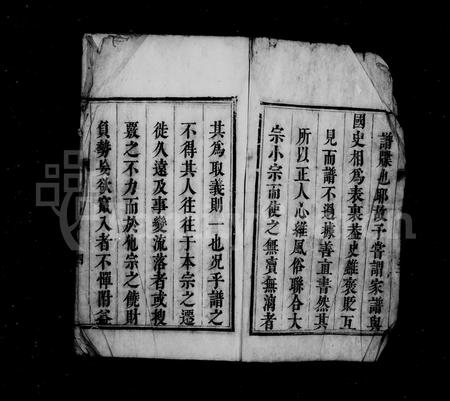 譜牒也耶故予嘗謂家譜與
國史相為表裏蓋史雖褒貶互
見而譜不過據善直書然其
所以正人心維風俗聯合大
宗小宗而使之無賣無淆者
其為取義則一也況乎譜之
不得其人往往于本宗之遷
徙久遠及事變流落者或搜
覈之不力而於他宗之饒財
負勢矣欲竄入者不憚附益